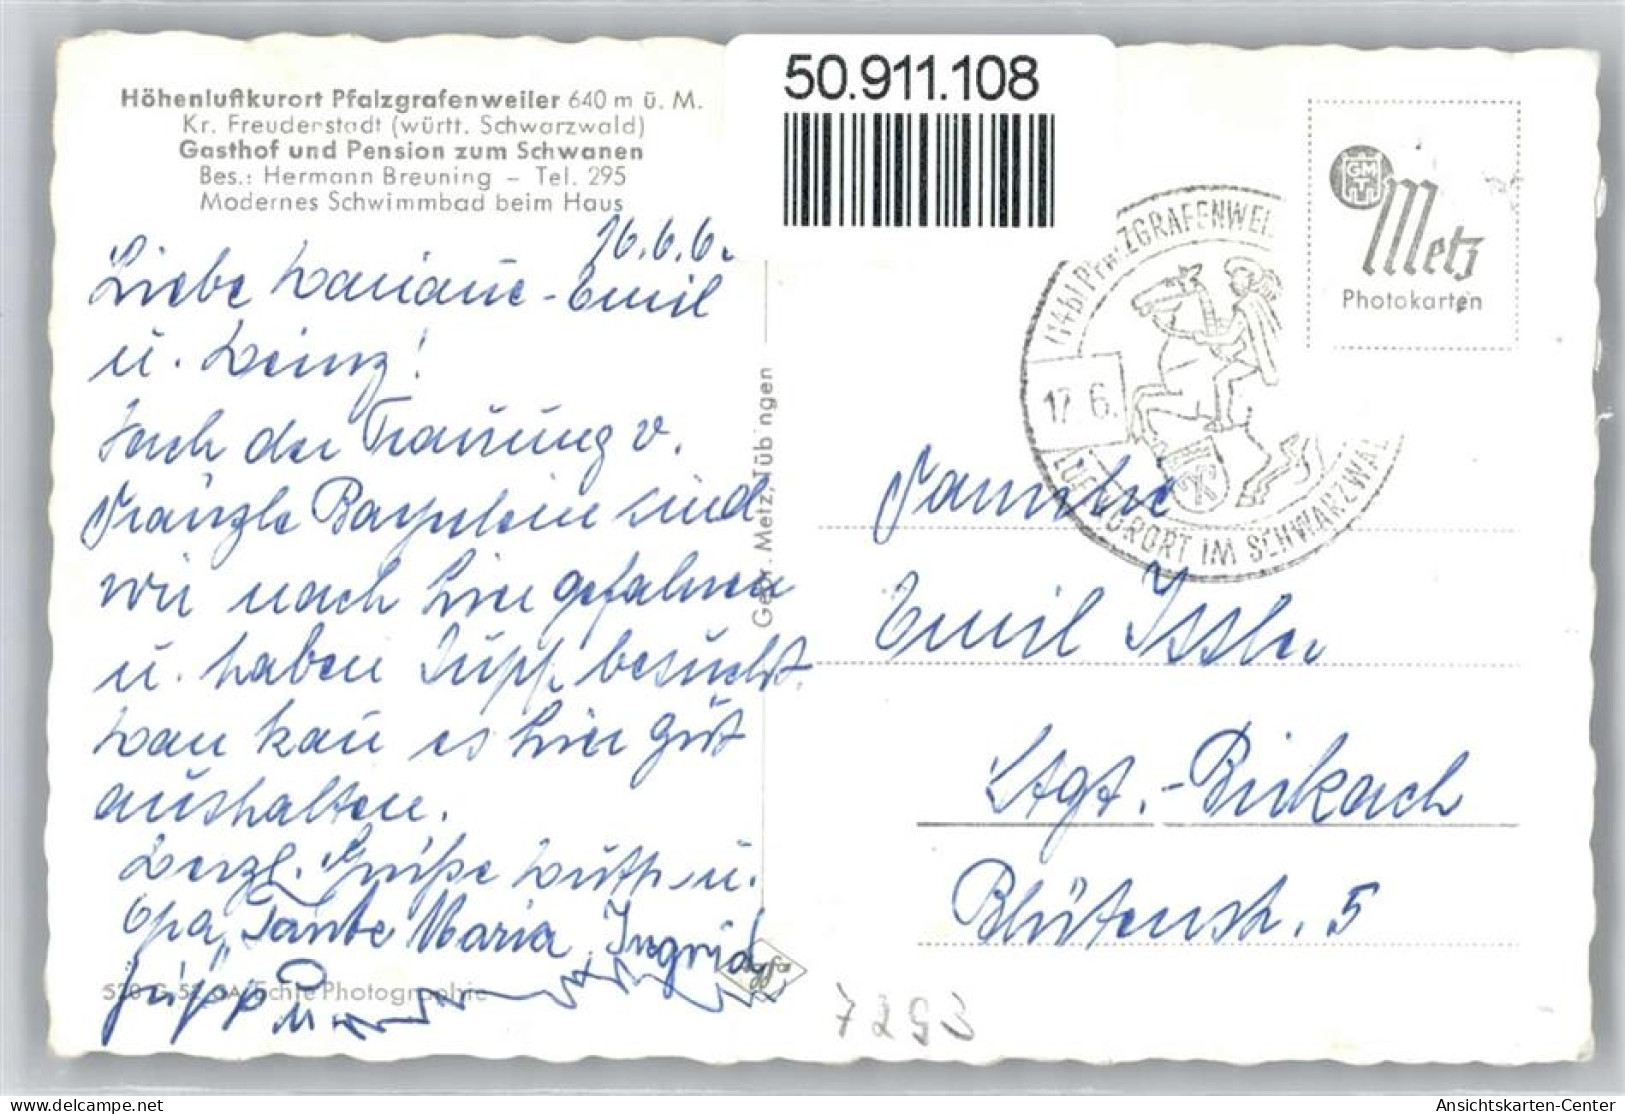 Höhenluftkurort Pfalzgrafenweiler 640 m ü. M.
Kr. Freudenstadt (württ. Schwarzwald)
Gasthof und Pension zum Schwanen
Bes.: Hermann Breuning – Tel. 295
Modernes Schwimmbad beim Haus
16.6.6
Liebe Mariane-Emil
u. Heinz!
Nach der Trauung v.
Fränzle sind
wir nach hier gefahren
u. haben Jupp besucht.
Man kan es hier gut
aushalten.
Herzl. Grüße u.
Opa, Tante Maria, Ingrid
Jupp
Echte Photographie
Gebr. Metz, Tübingen
50.911.108
(14b) PFALZGRAFENWEI
17 6.
LUFTKURORT IM SCHWARZWAL
GM
T
Metz
Photokarten
Familie
Emil Issler
Stgt.-Birkach
Blütenstr. 5
7293
www.delcampe.net
jjmm
Ansichtskarten-Center